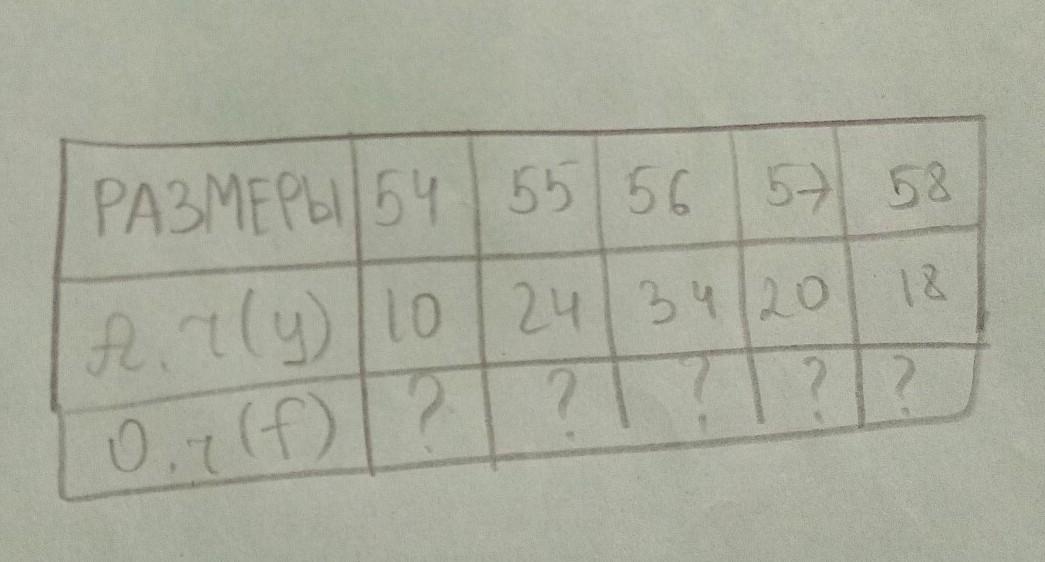 РАЗМЕРЫ 54 55 56 57 58
А. ч (у) 10 24 34 20 18
О. ч (f) ? ? ? ? ?